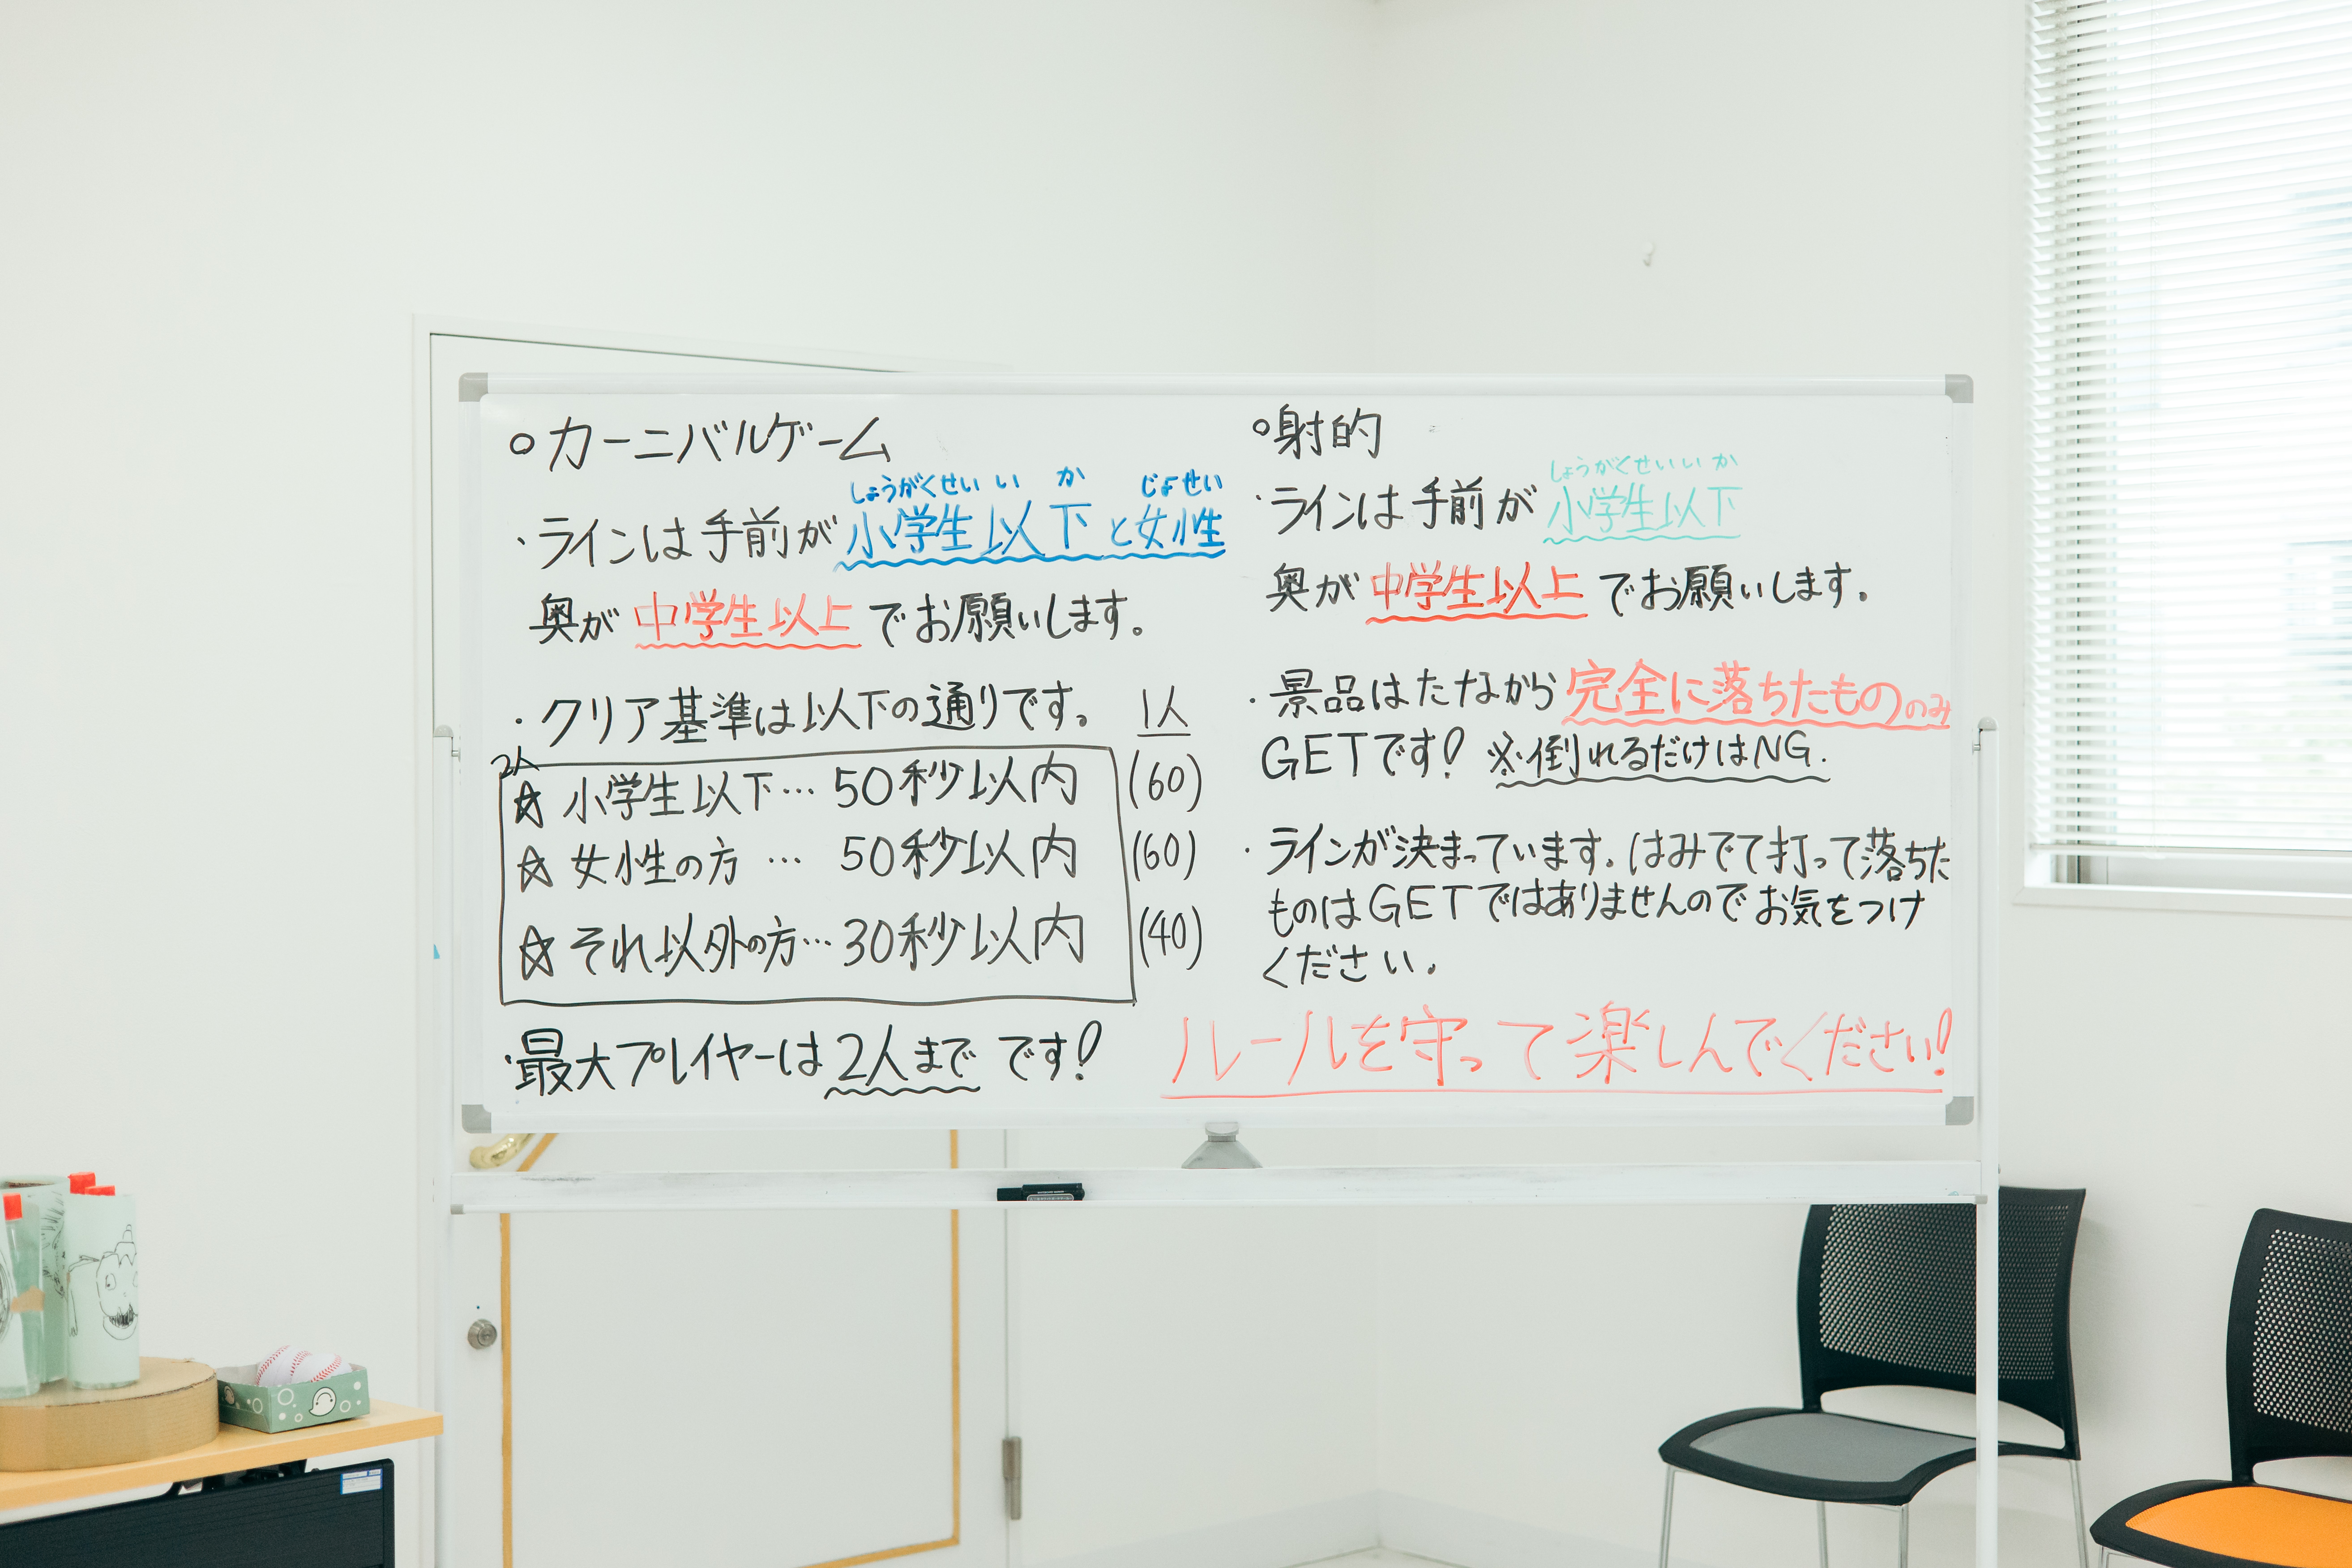 ○カーニバルゲーム
しょうがくせい い か じょせい
・ラインは手前が小学生以下と女性
奥が中学生以上でお願いします。
・クリア基準は以下の通りです。 1人
2人
☆ 小学生以下… 50秒以内 (60)
☆ 女性の方 … 50秒以内 (60)
☆ それ以外の方…30秒以内 (40)
・最大プレイヤーは2人までです!
○射的
しょうがくせい い か
・ラインは手前が小学生以下
奥が中学生以上でお願いします。
・景品はたなから完全に落ちたもののみ
GETです! ※倒れるだけはNG.
・ラインが決まっています。はみでて打って落ちた
ものはGETではありませんのでお気をつけ
ください。
ルールを守って楽しんでください!